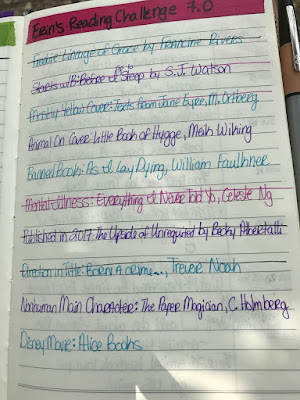 Erin's Reading Challenge 7.0
Freebie: Lineage of Grace by Francine Rivers
Starts w/B: Before I Go to Sleep by S.J. Watson
Mostly Yellow Cover: Texts from Jane Eyre, M. Ortberg
Animal On Cover: Little Book of Hygge, Meik Wiking
Banned Book: As I Lay Dying, William Faulkner
Mental Illness: Everything I Never Told You, Celeste Ng
Published in 2017 The Upside of Unrequited by Becky Albertalli
Direction in Title: BORN A CRIME..., Trevor Noah
Nonhuman Main Character: The Paper Magician, C. Holmberg
Disney Movie: Alice Books